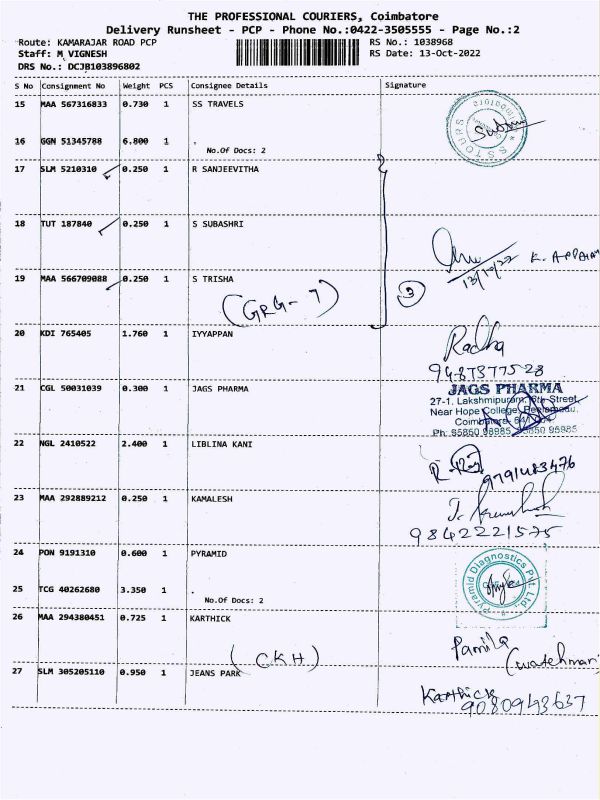 THE PROFESSIONAL COURIERS, Coimbatore
Delivery Runsheet - PCP - Phone No.:0422-3505555 - Page No.:2
Route: KAMARAJAR ROAD PCP RS No.: 1038968
Staff: M VIGNESH RS Date: 13-Oct-2022
DRS No.: DCJB103896802
S No Consignment No Weight PCS Consignee Details Signature
15 MAA 567316833 0.730 1 SS TRAVELS
S.S TOURS
16 GGN 51345788 6.800 1 .
No.Of Docs: 2
17 SLM 5210310 0.250 1 R SANJEEVITHA
18 TUT 187840 0.250 1 S SUBASHRI
13/10/22
19 MAA 566709088 0.250 1 S TRISHA
(GRG- 7) 3
20 KDI 765405 1.760 1 IYYAPPAN Radha
9487377528
21 CGL 50031039 0.300 1 JAGS PHARMA JAGS PHARMA
27-1, Lakshmipuram, 6th Street,
Near Hope College, Peelamedu,
Coimbatore
Ph: 95985
22 NGL 2410522 2.400 1 LIBLINA KANI
9791483476
23 MAA 292889212 0.250 1 KAMALESH
9842221575
24 PON 9191310 0.600 1 PYRAMID
Pyramid Diagnostics Pvt. Ltd.
25 TCG 40262680 3.350 1 .
No.Of Docs: 2
26 MAA 294380451 0.725 1 KARTHICK
(CKH) Pamila (watchman)
27 SLM 305205110 0.950 1 JEANS PARK Karthick
9080943637